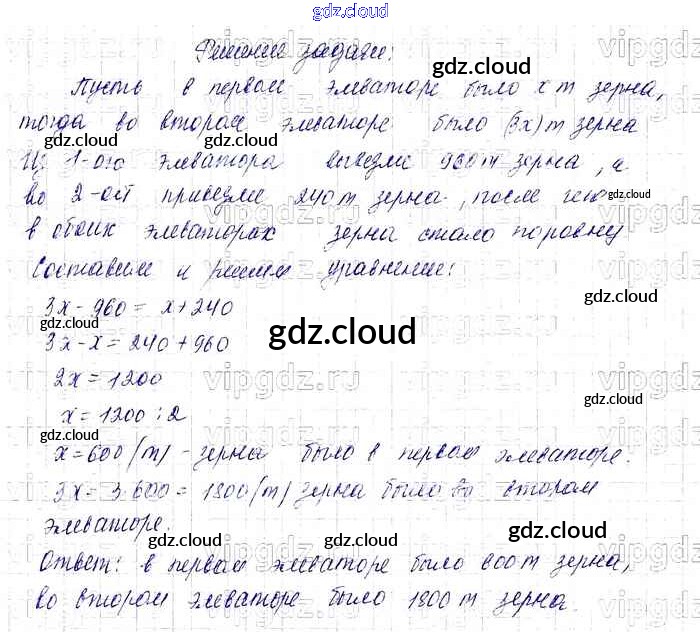 gdz.cloud
Решение задачи:
gdz.cloud
Пусть в первом элеваторе было x т зерна,
тогда во втором элеваторе было (3x) т зерна
gdz.cloud gdz.cloud
Из 1-ого элеватора вывезли 960 т зерна, а
во 2-ой привезли 240 т зерна, после чего
gdz.cloud
в обоих элеваторах зерна стало поровну
Составим и решим уравнение:
3x - 960 = x + 240
gdz.cloud gdz.cloud gdz.cloud
3x - x = 240 + 960
2x = 1200
gdz.cloud
x = 1200 : 2
gdz.cloud
x = 600 (т) - зерна было в первом элеваторе.
3x = 3·600 = 1800 (т) зерна было во втором
элеваторе.
gdz.cloud gdz.cloud gdz.cloud
Ответ: в первом элеваторе было 600 т зерна,
во втором элеваторе было 1800 т зерна.